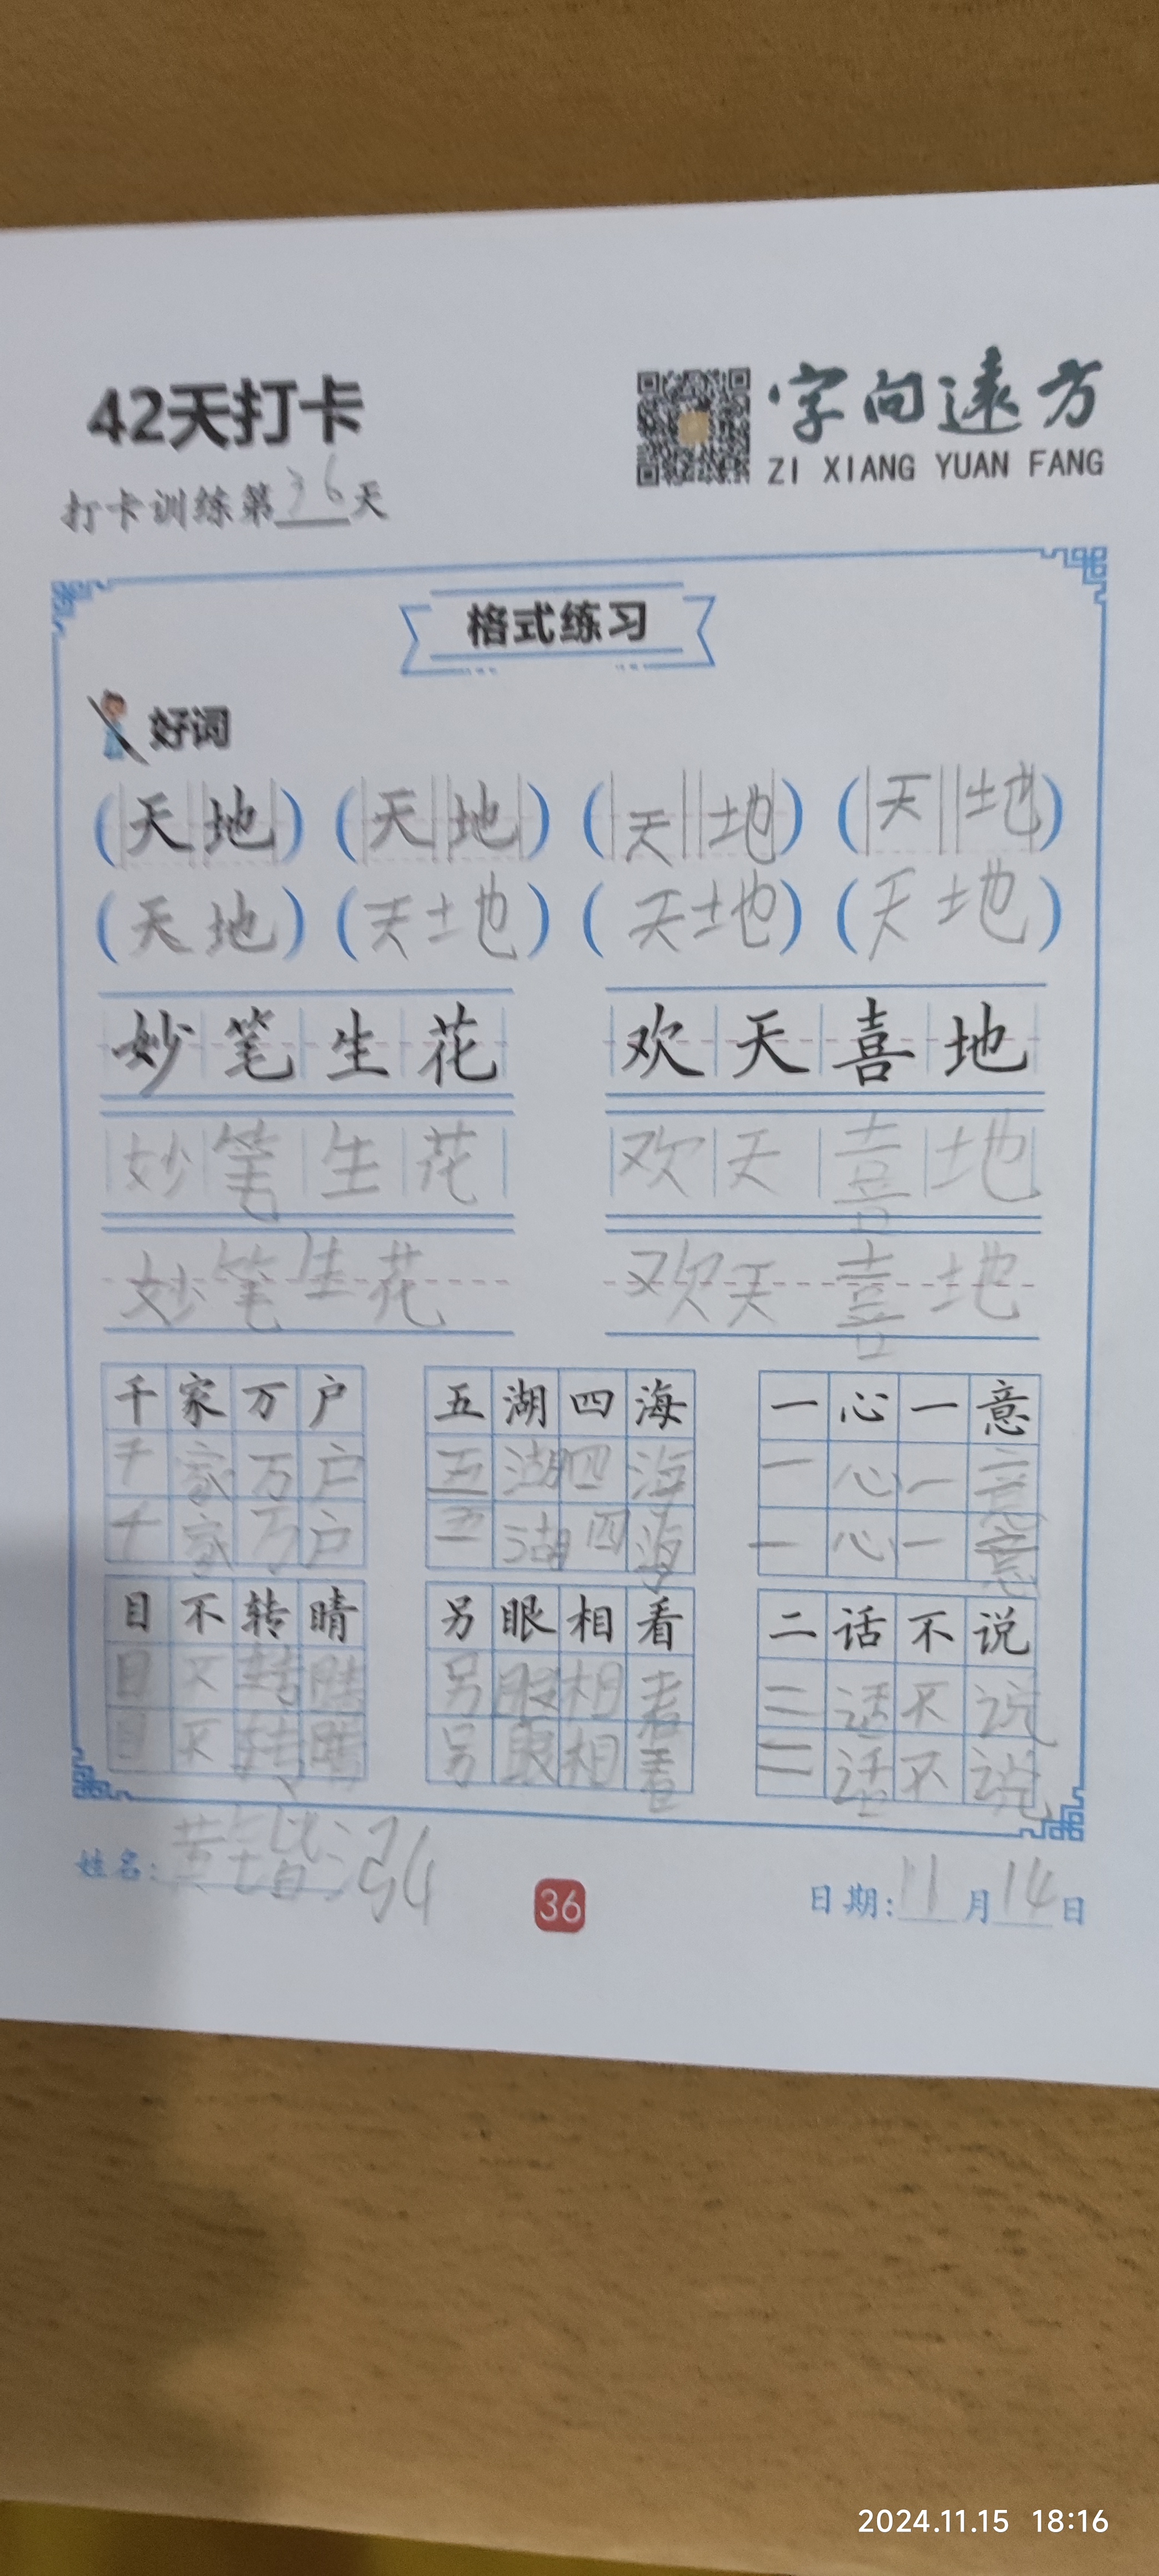 42天打卡
字向远方
ZI XIANG YUAN FANG
打卡训练第36天
格式练习
好词
(天地) (天地) (天地) (天地)
(天地) (天地) (天地) (天地)
妙笔生花 欢天喜地
妙笔生花 欢天喜地
妙笔生花 欢天喜地
千家万户 五湖四海 一心一意
千家万户 五湖四海 一心一意
千家万户 五湖四海 一心一意
目不转睛 另眼相看 二话不说
目不转睛 另眼相看 二话不说
目不转睛 另眼相看 二话不说
姓名:
36
日期:11月14日
2024.11.15 18:16